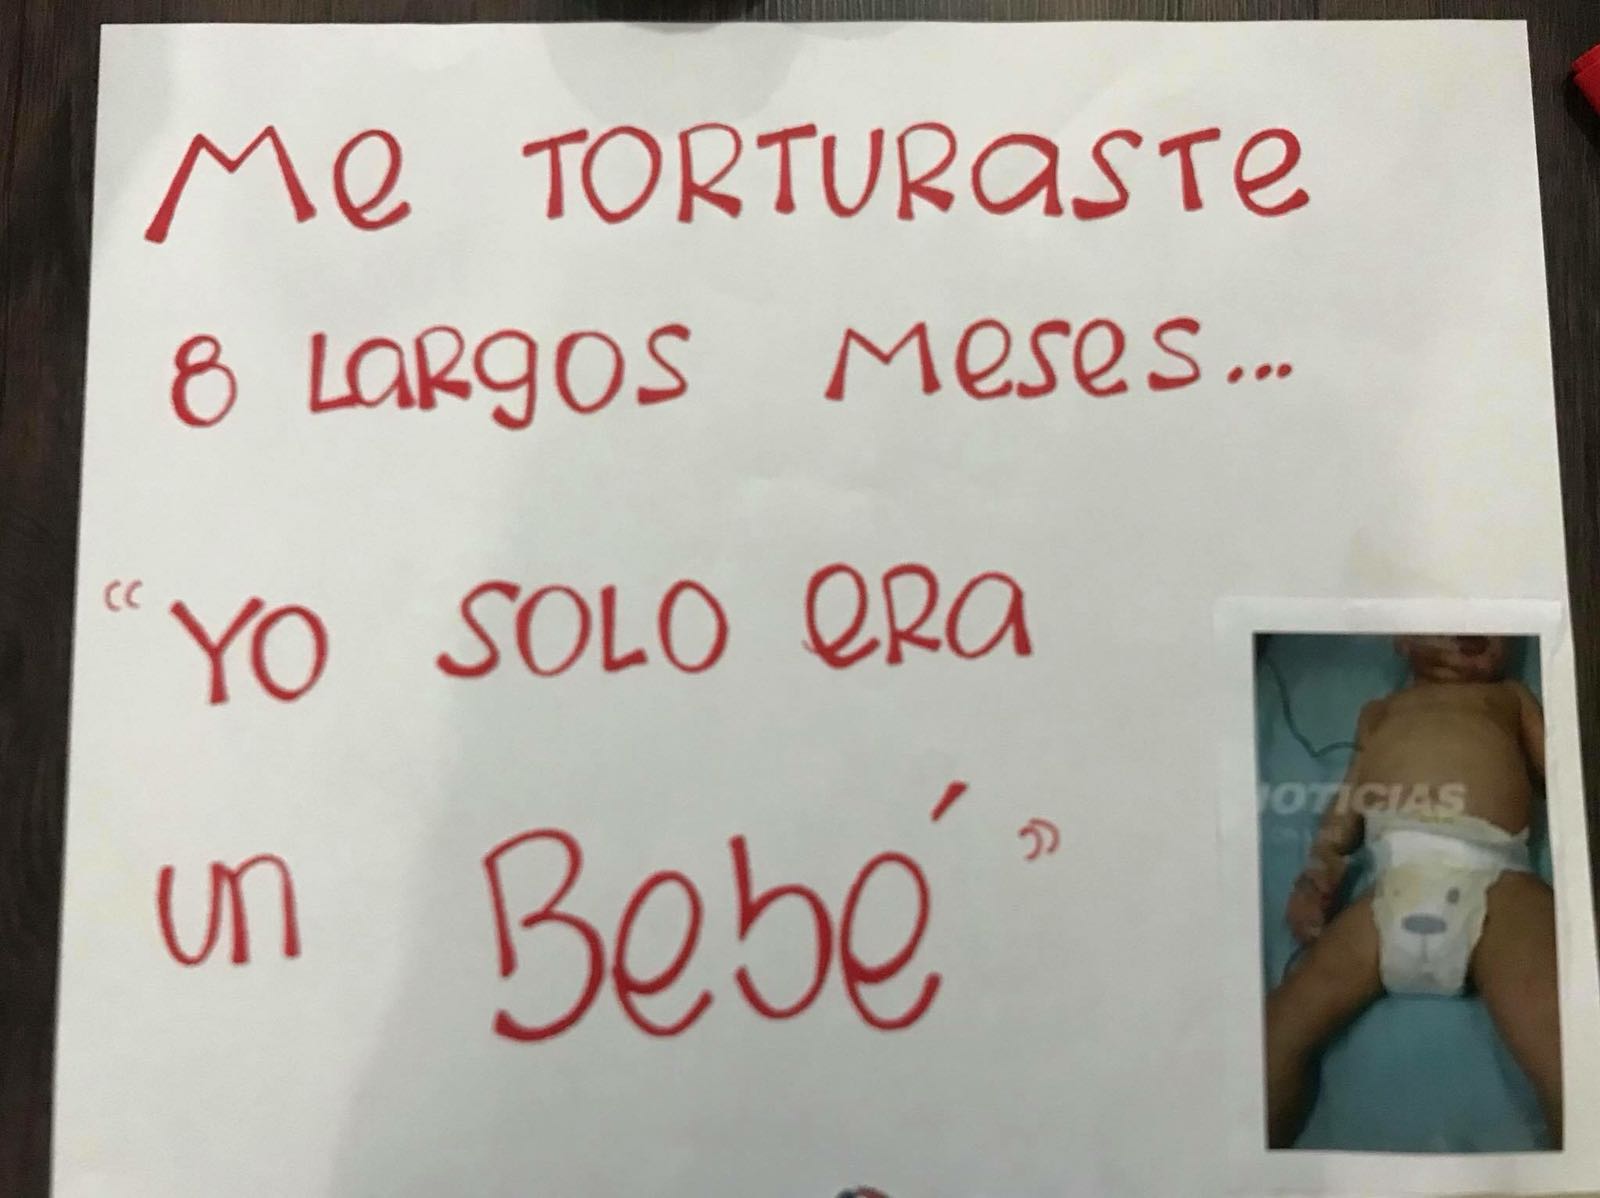 Me TORTURaSTe
8 LaRgOS MeSeS...
“YO SOLO eRa
un Bebé”
NOTICIAS